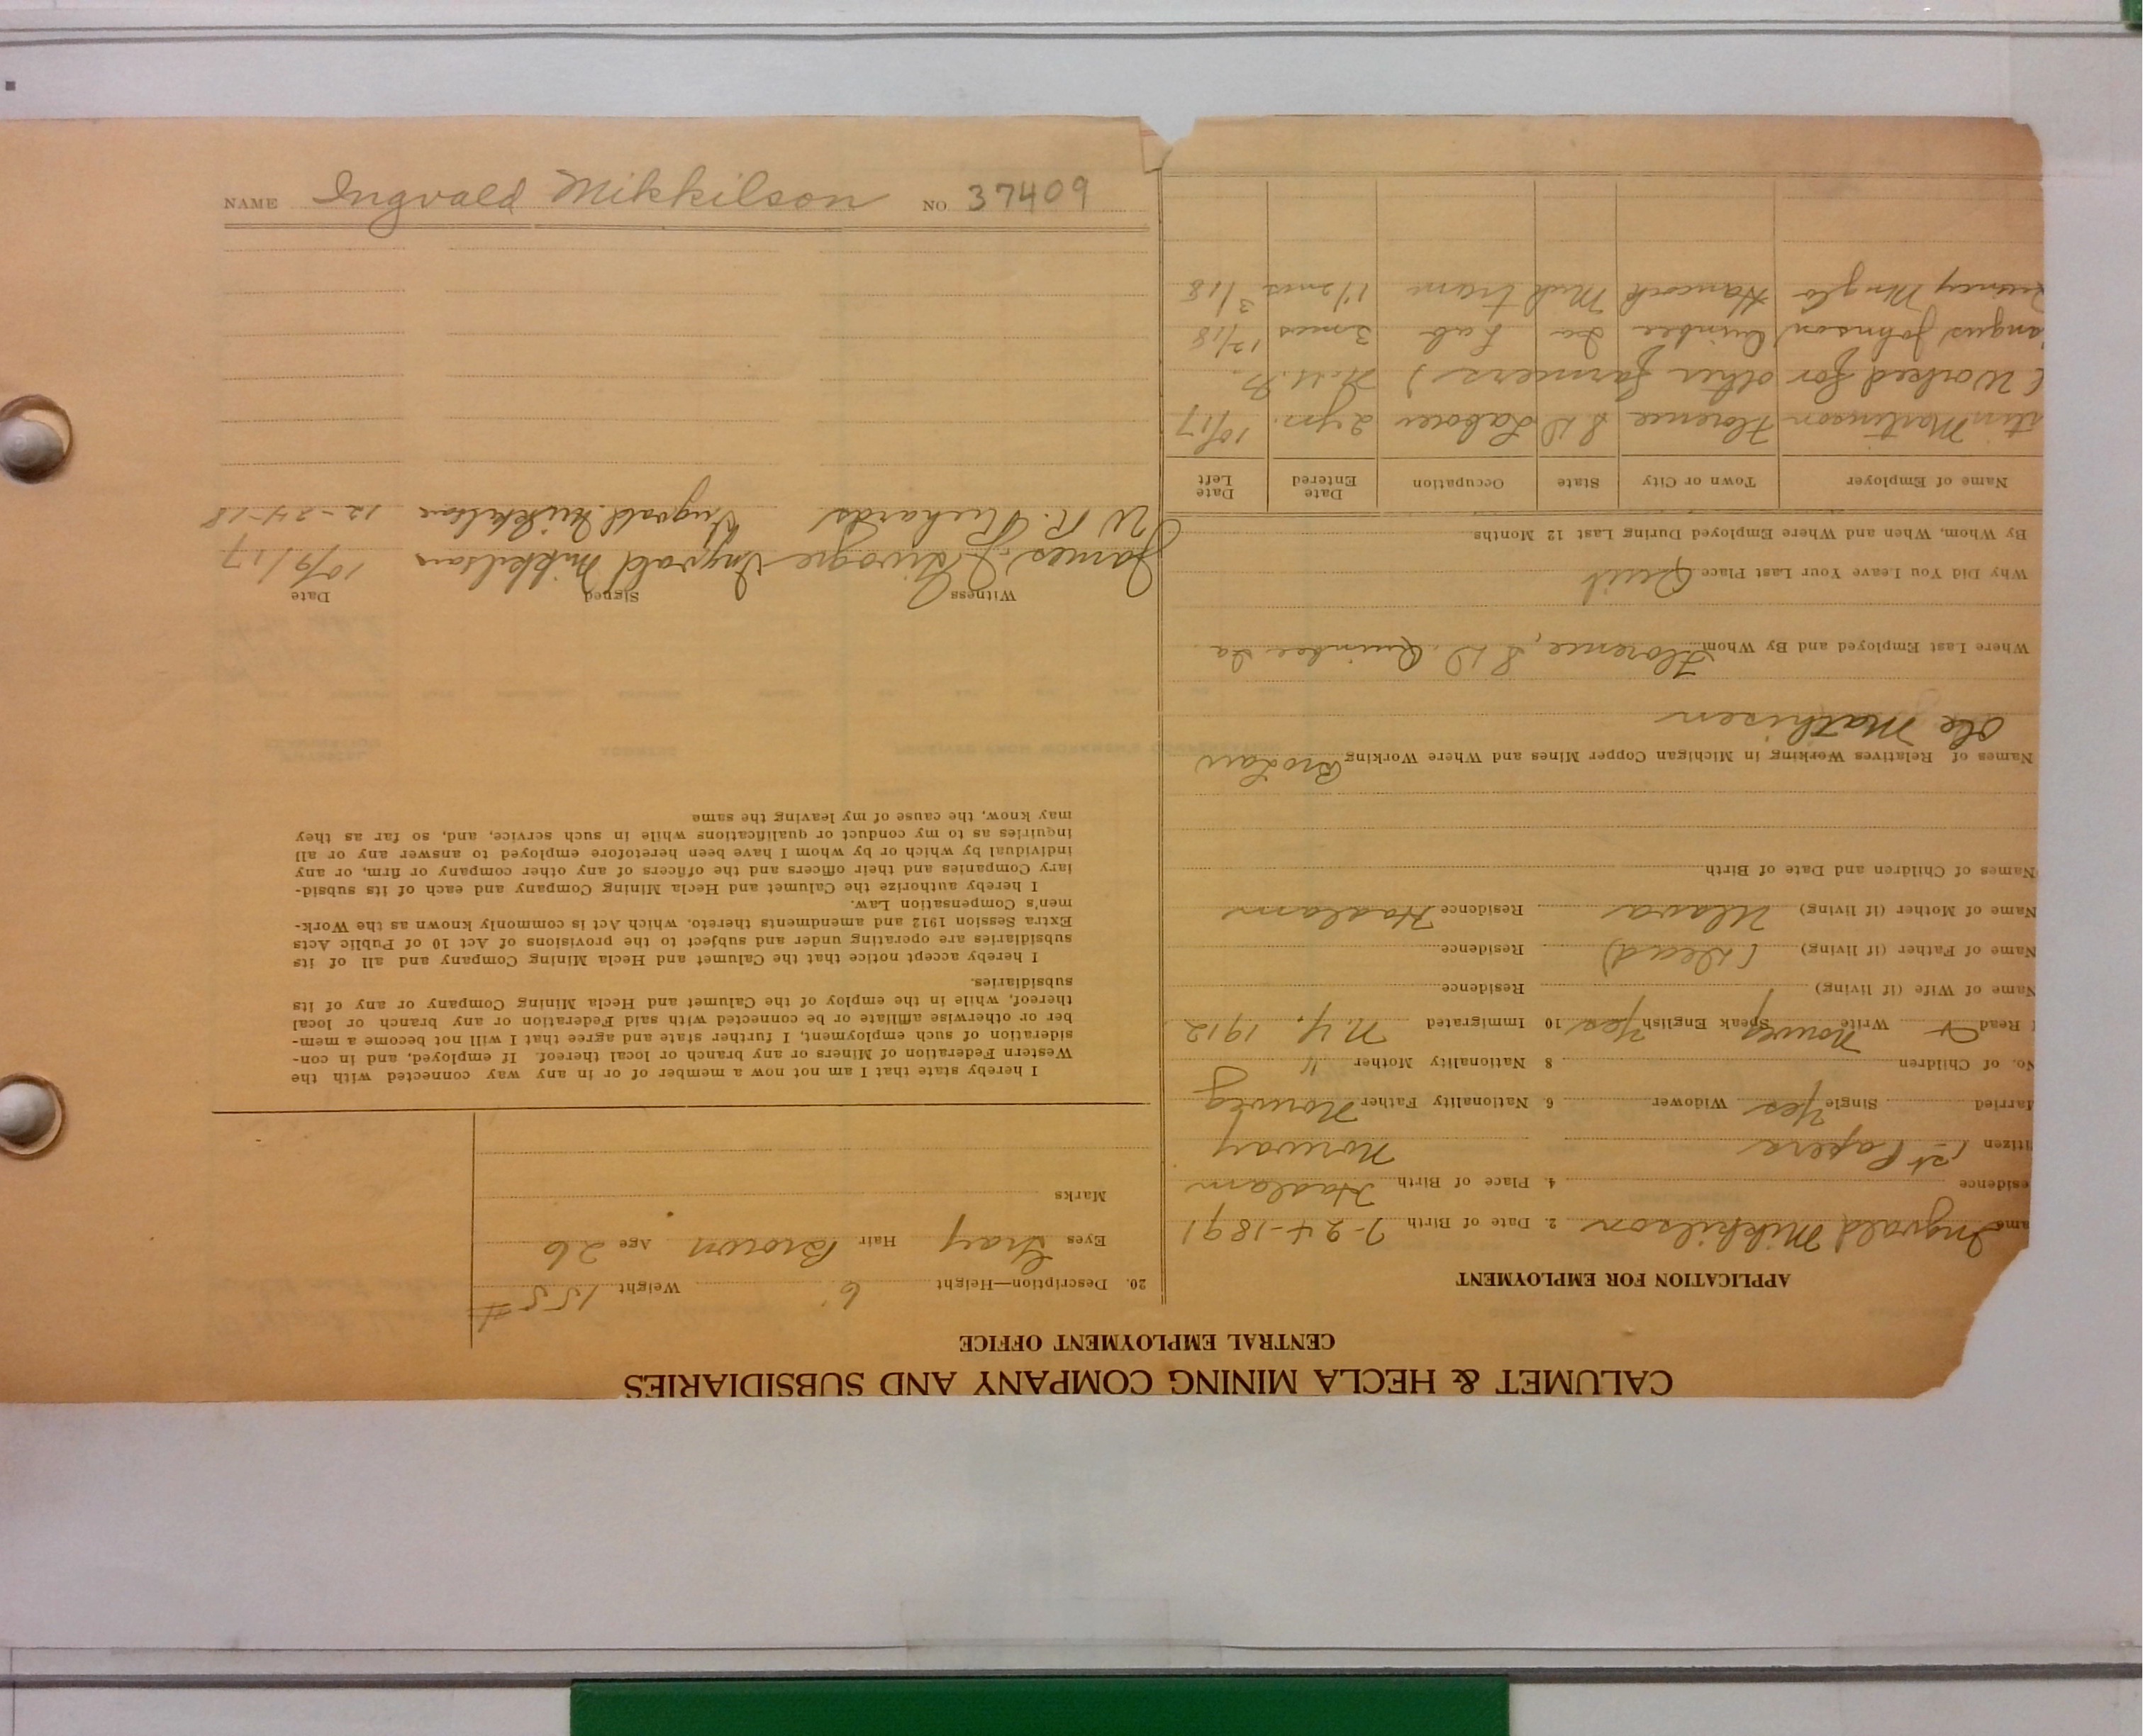 NAME Ingvald Mikkilson NO. 37409
CALUMET & HECLA MINING COMPANY AND SUBSIDIARIES
CENTRAL EMPLOYMENT OFFICE
APPLICATION FOR EMPLOYMENT
ame Ingvald Mikkilson 2. Date of Birth 7-24-1891
esidence 4. Place of Birth Haalam
Norway
itizen 1st Papers
arried Single Yes Widower 6 Nationality Father Norweg
No. of Children 8 Nationality Mother "
Read Write Norweg Speak English Yes 10 Immigrated N.Y. 1912
Name of Wife (if living) Residence
Name of Father (if living) (Dead) Residence
Name of Mother (if living) Residence Haalam
Names of Children and Date of Birth
Names of Relatives Working in Michigan Copper Mines and Where Working Bro Law
Ole Mathisen
Where Last Employed and By Whom Florence, S D. Quimbee Ia
Why Did You Leave Your Last Place Quit
By Whom, When and Where Employed During Last 12 Months
Name of Employer Town or City State Occupation Date Entered Date Left
tin Martinson Florence S D Laborer 2 yrs. 10/17
(Worked for other farmers)
angus Johnson Quimbee Ia Lab 3 mos 12/18
Quincy Mng Co Hancock Mich tram 1 1/2 mos 3/18
20. Description—Height 6' Weight 155 #
Eyes Gray Hair Brown Age 26
Marks
I hereby state that I am not now a member of or in any way connected with the
Western Federation of Miners or any branch or local thereof. If employed, and in con-
sideration of such employment, I further state and agree that I will not become a mem-
ber or otherwise affiliate or be connected with said Federation or any branch or local
thereof, while in the employ of the Calumet and Hecla Mining Company or any of its
subsidiaries.
I hereby accept notice that the Calumet and Hecla Mining Company and all of its
subsidiaries are operating under and subject to the provisions of Act 10 of Public Acts
Extra Session 1912 and amendments thereto, which Act is commonly known as the Work-
men's Compensation Law.
I hereby authorize the Calumet and Hecla Mining Company and each of its subsid-
iary Companies and their officers and the officers of any other company or firm, or any
individual by which or by whom I have been heretofore employed to answer any or all
inquiries as to my conduct or qualifications while in such service, and, so far as they
may know, the cause of my leaving the same
Witness Signed Date
James Ingvald Mikkilson 10/9/17
W R. Richards Ingvald Mikkilson 12-24-18